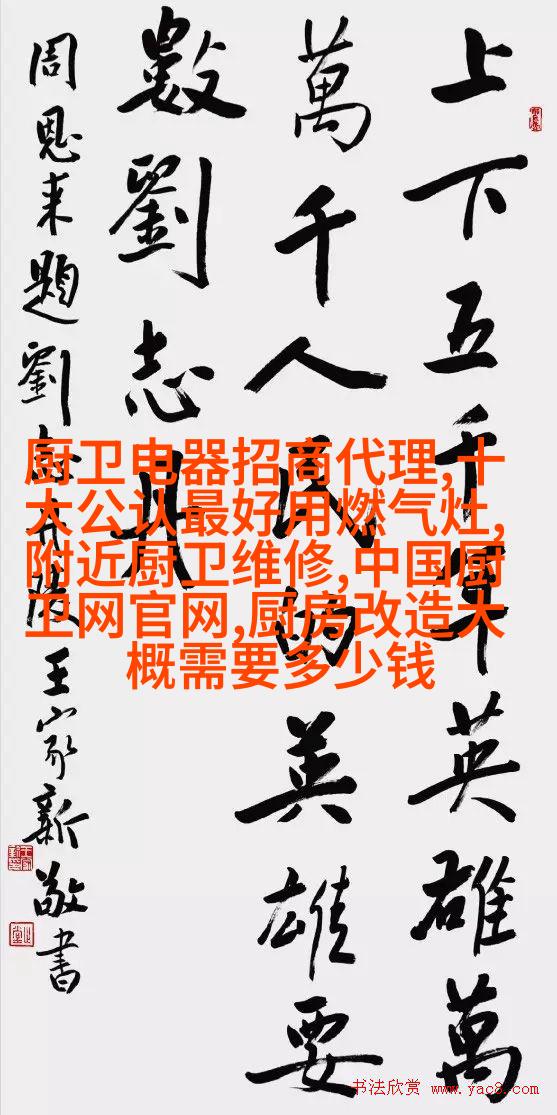 上下五千年英雄萬
萬千人民的英雄要
數劉志丹
周恩来題劉志丹陵王家新敬書
厨卫电器招商代理,十
大公认最好用燃气灶,
附近厨卫维修,中国厨
卫网官网,厨房改造大
概需要多少钱
书法欣赏 www.yac8.com